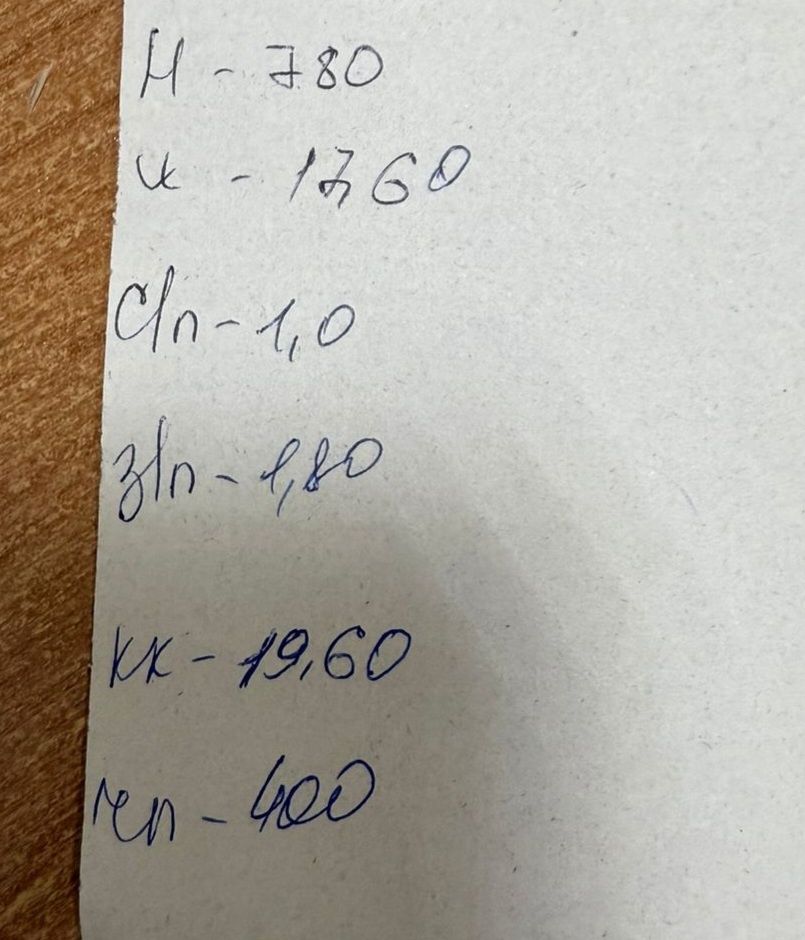 Н - 780
к - 17,60
С/п - 1,0
З/п - 1,80
КК - 19,60
- 400